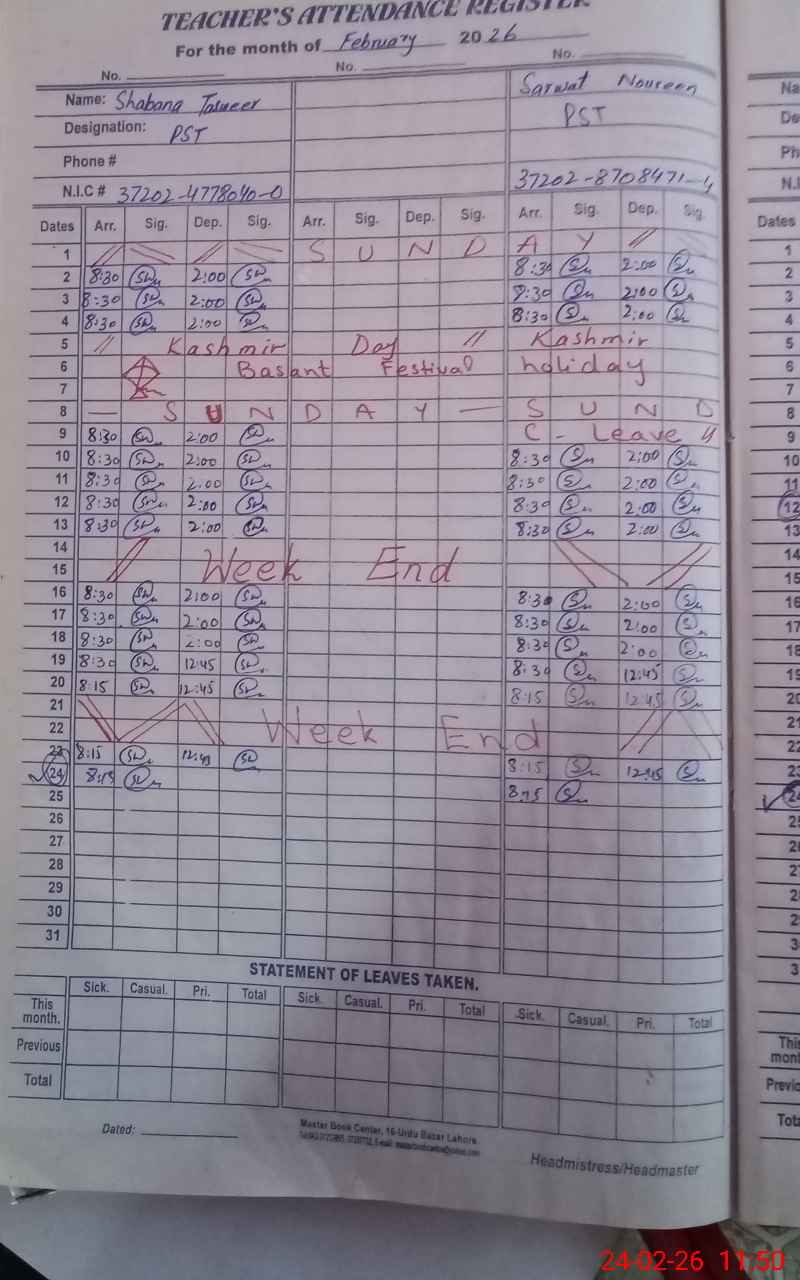 TEACHER'S ATTENDANCE REGISTER
For the month of February 2026
No. No. No.
Name: Shabana Sarwat Noureen
Designation: PST PST
Phone #
N.I.C # 37202-4778040-0 37202-8708471-4
Dates Arr. Sig. Dep. Sig. Arr. Sig. Dep. Sig. Arr. Sig. Dep. Sig.
1 // // S U N D A Y //
2 8:30 2:00 8:30 2:00
3 8:30 2:00 8:30 2:00
4 8:30 2:00 8:30 2:00
5 // Kashmir Day // Kashmir
6 Basant Festival holiday
7
8 — S U N D A Y — S U N D
9 8:30 2:00 C - Leave
10 8:30 2:00 8:30 2:00
11 8:30 2:00 8:30 2:00
12 8:30 2:00 8:30 2:00
13 8:30 2:00 8:30 2:00
14
15 Week End
16 8:30 2:00 8:30 2:00
17 8:30 2:00 8:30 2:00
18 8:30 2:00 8:30 2:00
19 8:30 12:45 8:30 12:45
20 8:15 12:45 8:15 12:45
21
22 Week End
23 8:15 12:45 8:15 12:45
24 8:15 8:15
25
26
27
28
29
30
31
STATEMENT OF LEAVES TAKEN.
Sick. Casual. Pri. Total Sick. Casual. Pri. Total Sick. Casual. Pri. Total
This month.
Previous
Total
Dated:
Master Book Center, 16-Urdu Bazar Lahore
Headmistress/Headmaster
Dates
1
2
3
4
5
6
7
8
9
10
11
12
13
14
15
16
17
18
19
20
21
22
23
24
24-02-26 11:50